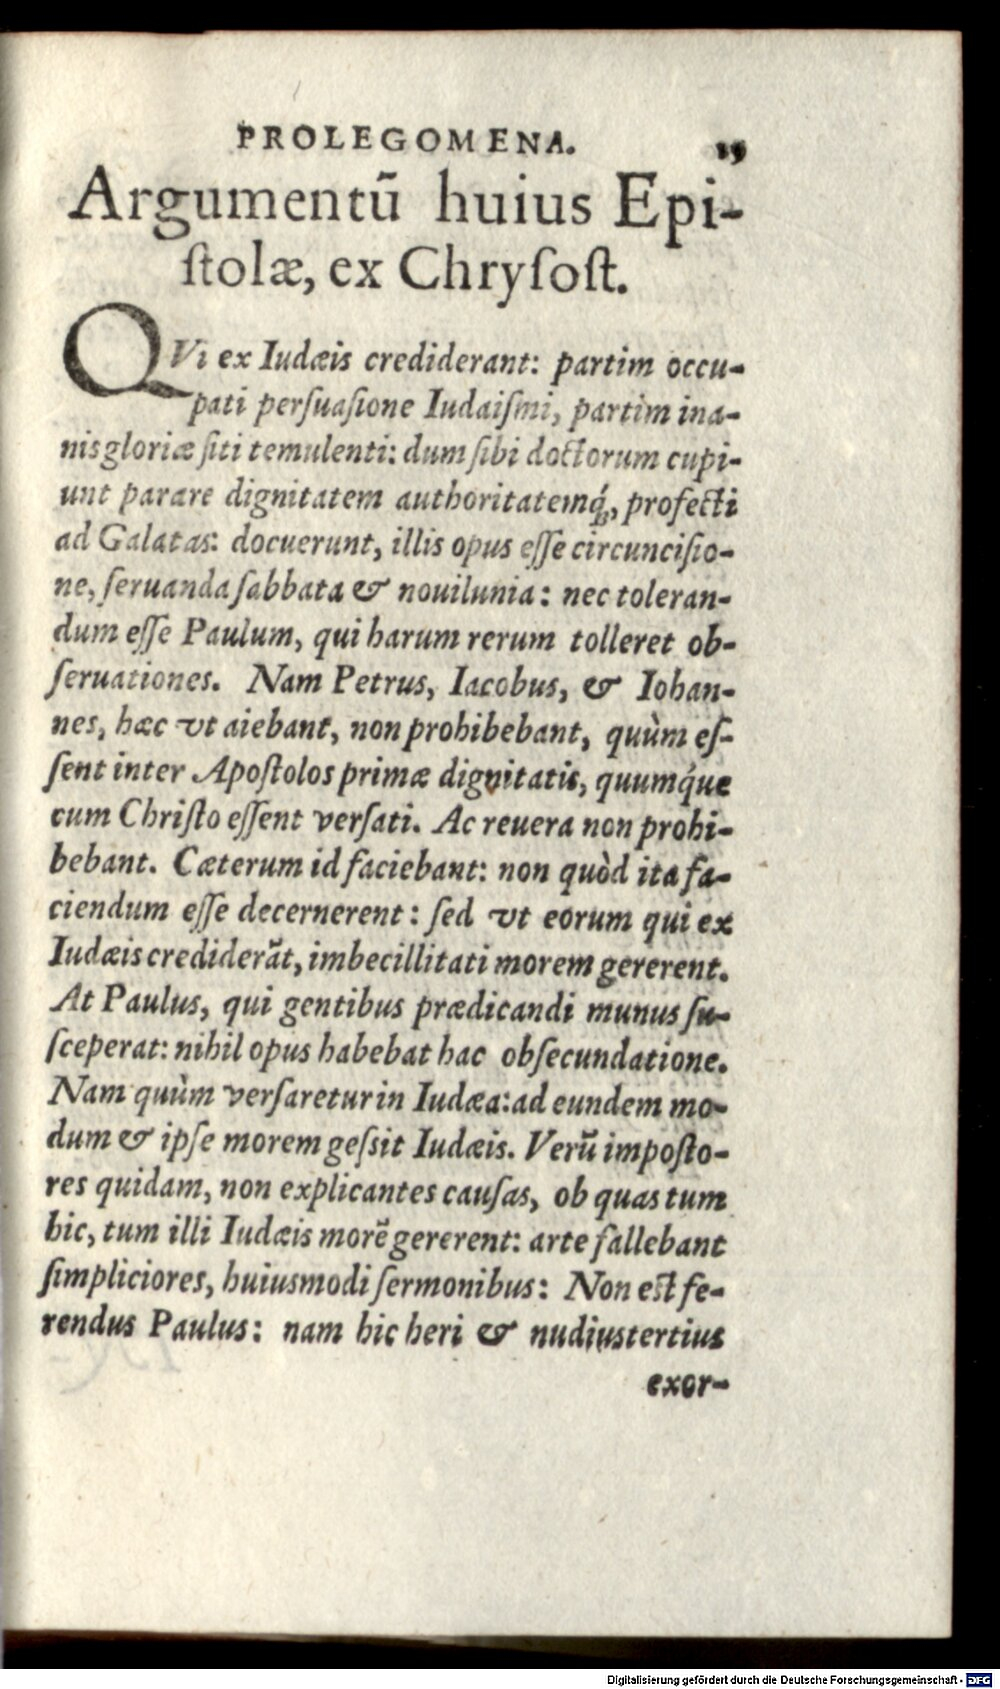 PROLEGOMENA. 15
Argumentū huius Epi-
ſtolæ, ex Chryſoſt.
QVi ex Iudæis crediderant: partim occu-
pati perſuaſione Iudaiſmi, partim ina-
nis gloriæ ſiti temulenti: dum ſibi doctorum cupi-
unt parare dignitatem authoritatemq́;, profecti
ad Galatas: docuerunt, illis opus eſſe circunciſio-
ne, ſeruanda ſabbata & nouilunia: nec toleran-
dum eſſe Paulum, qui harum rerum tolleret ob-
ſeruationes. Nam Petrus, Iacobus, & Iohan-
nes, hæc vt aiebant, non prohibebant, quùm eſ-
ſent inter Apoſtolos primæ dignitatis, quumq́ue
cum Chriſto eſſent verſati. Ac reuera non prohi-
bebant. Cæterum id faciebant: non quòd ita fa-
ciendum eſſe decernerent: ſed vt eorum qui ex
Iudæis crediderāt, imbecillitati morem gererent.
At Paulus, qui gentibus prædicandi munus ſu-
ſceperat: nihil opus habebat hac obſecundatione.
Nam quùm verſaretur in Iudæa: ad eundem mo-
dum & ipſe morem geſsit Iudæis. Verū impoſto-
res quidam, non explicantes cauſas, ob quas tum
hic, tum illi Iudæis morē gererent: arte fallebant
ſimpliciores, huiusmodi ſermonibus: Non eſt fe-
rendus Paulus: nam hic heri & nudiustertius
exor-
Digitalisierung gefördert durch die Deutsche Forschungsgemeinschaft - DFG